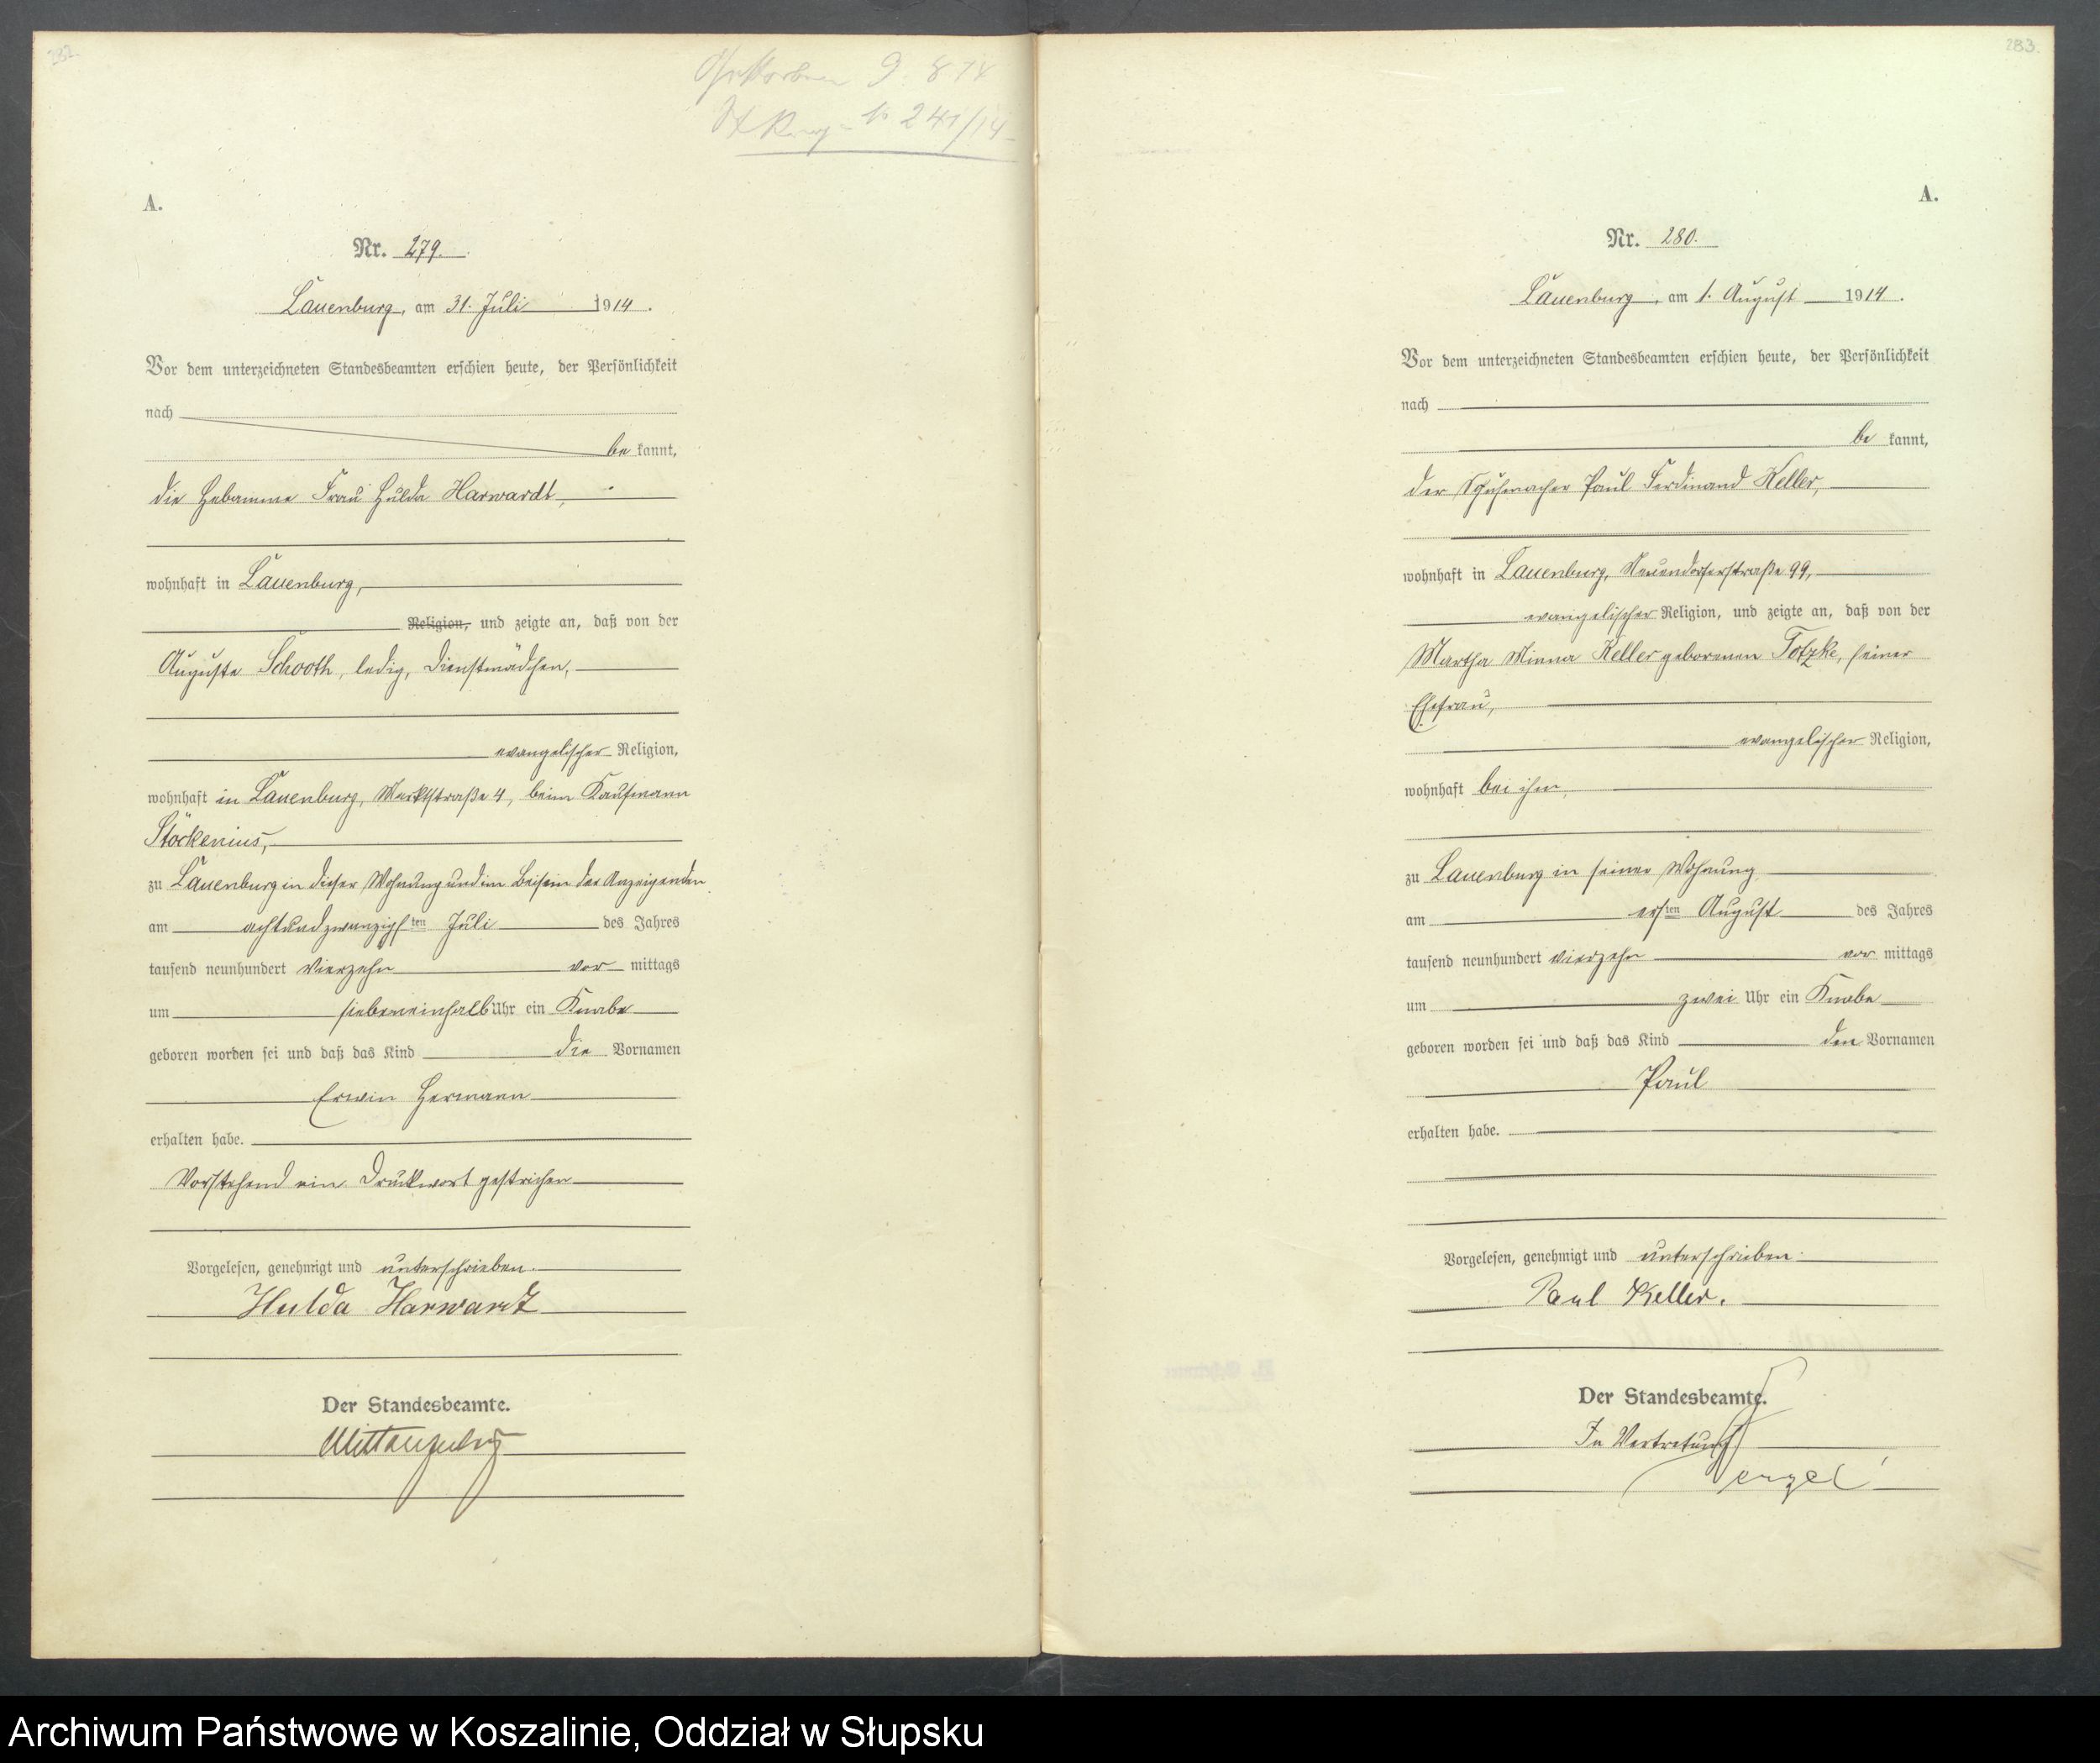 282.
Gestorben 9. 8. 14
St. Reg. No 241/14
A.
Nr. 279.
Lauenburg, am 31. Juli 1914.
Vor dem unterzeichneten Standesbeamten erschien heute, der Persönlichkeit
nach
bekannt,
die Hebamme Frau Hulda Harwardt,
wohnhaft in Lauenburg,
Religion, und zeigte an, daß von der
Auguste Schooth, ledig, Dienstmädchen,
evangelischer Religion,
wohnhaft in Lauenburg, Marktstraße 4, beim Kaufmann
Störkenius,
zu Lauenburg in dieser Wohnung und im Beisein der Anzeigenden
am achtundzwanzigsten Juli des Jahres
tausend neunhundert vierzehn vor mittags
um siebeneinhalb Uhr ein Knabe
geboren worden sei und daß das Kind die Vornamen
Erwin Hermann
erhalten habe.
Vorstehend ein Druckwort gestrichen
Vorgelesen, genehmigt und unterschrieben.
Hulda Harwardt
Der Standesbeamte.
283.
A.
Nr. 280.
Lauenburg, am 1. August 1914.
Vor dem unterzeichneten Standesbeamten erschien heute, der Persönlichkeit
nach
bekannt,
der Schuhmacher Paul Ferdinand Keller,
wohnhaft in Lauenburg, Neuendorferstraße 99,
evangelischer Religion, und zeigte an, daß von der
Martha Minna Keller geborenen Totzke, seiner
Ehefrau,
evangelischer Religion,
wohnhaft bei ihm,
zu Lauenburg in seiner Wohnung
am ersten August des Jahres
tausend neunhundert vierzehn vor mittags
um zwei Uhr ein Knabe
geboren worden sei und daß das Kind den Vornamen
Paul
erhalten habe.
Vorgelesen, genehmigt und unterschrieben.
Paul Keller.
Der Standesbeamte.
In Vertretung
Archiwum Państwowe w Koszalinie, Oddział w Słupsku